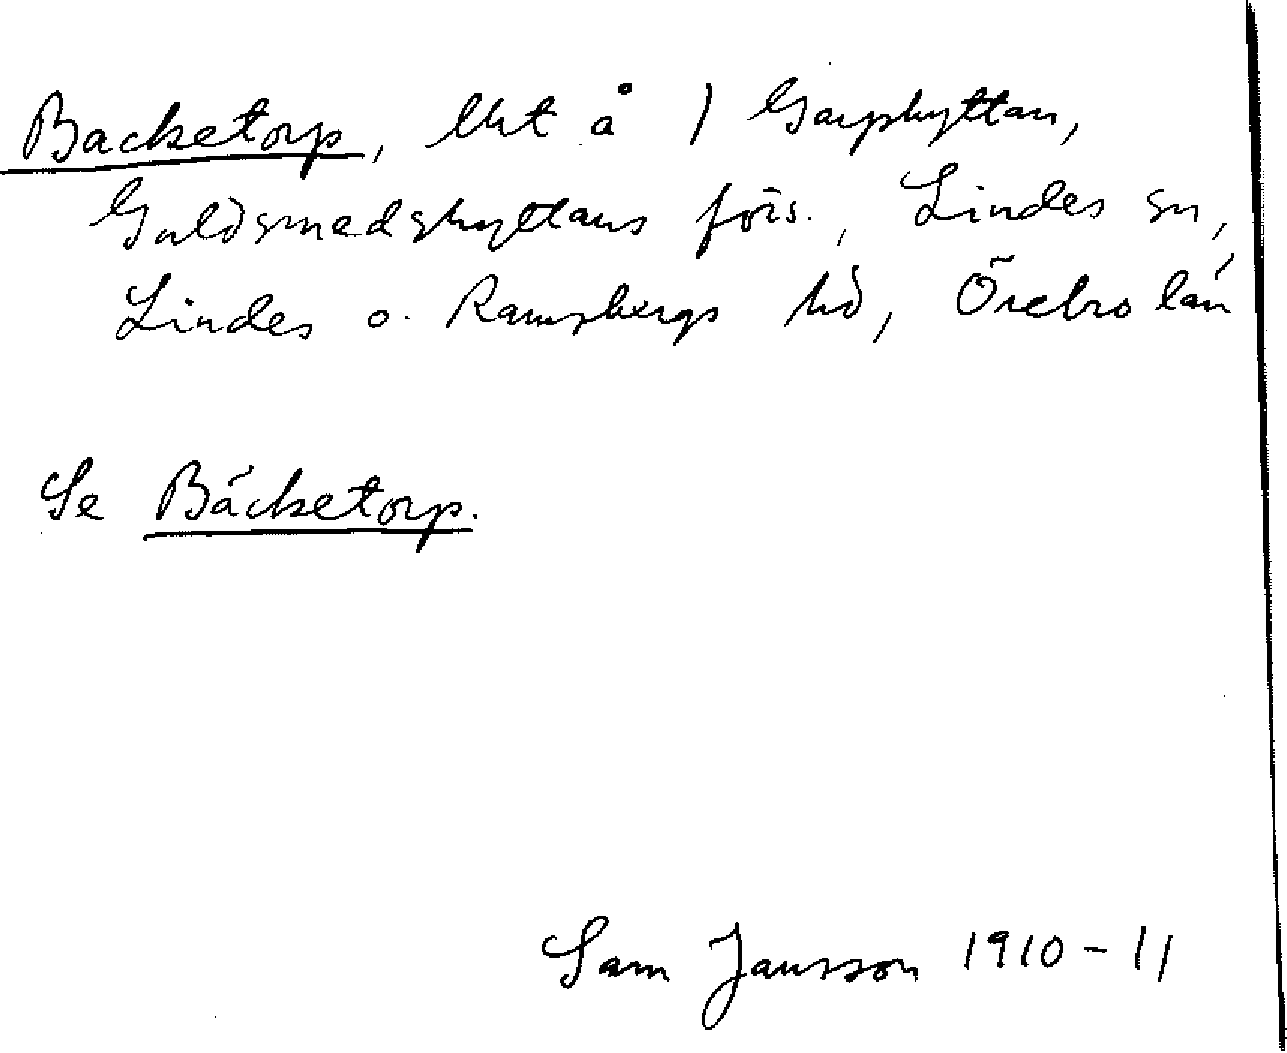 Backetorp, lht å 1 Garphyttan,
Guldsmedshyttans förs., Lindes sn,
Lindes o. Ramsbergs hd, Örebro län
Se Bäcketorp.
Sam Jansson 1910-11